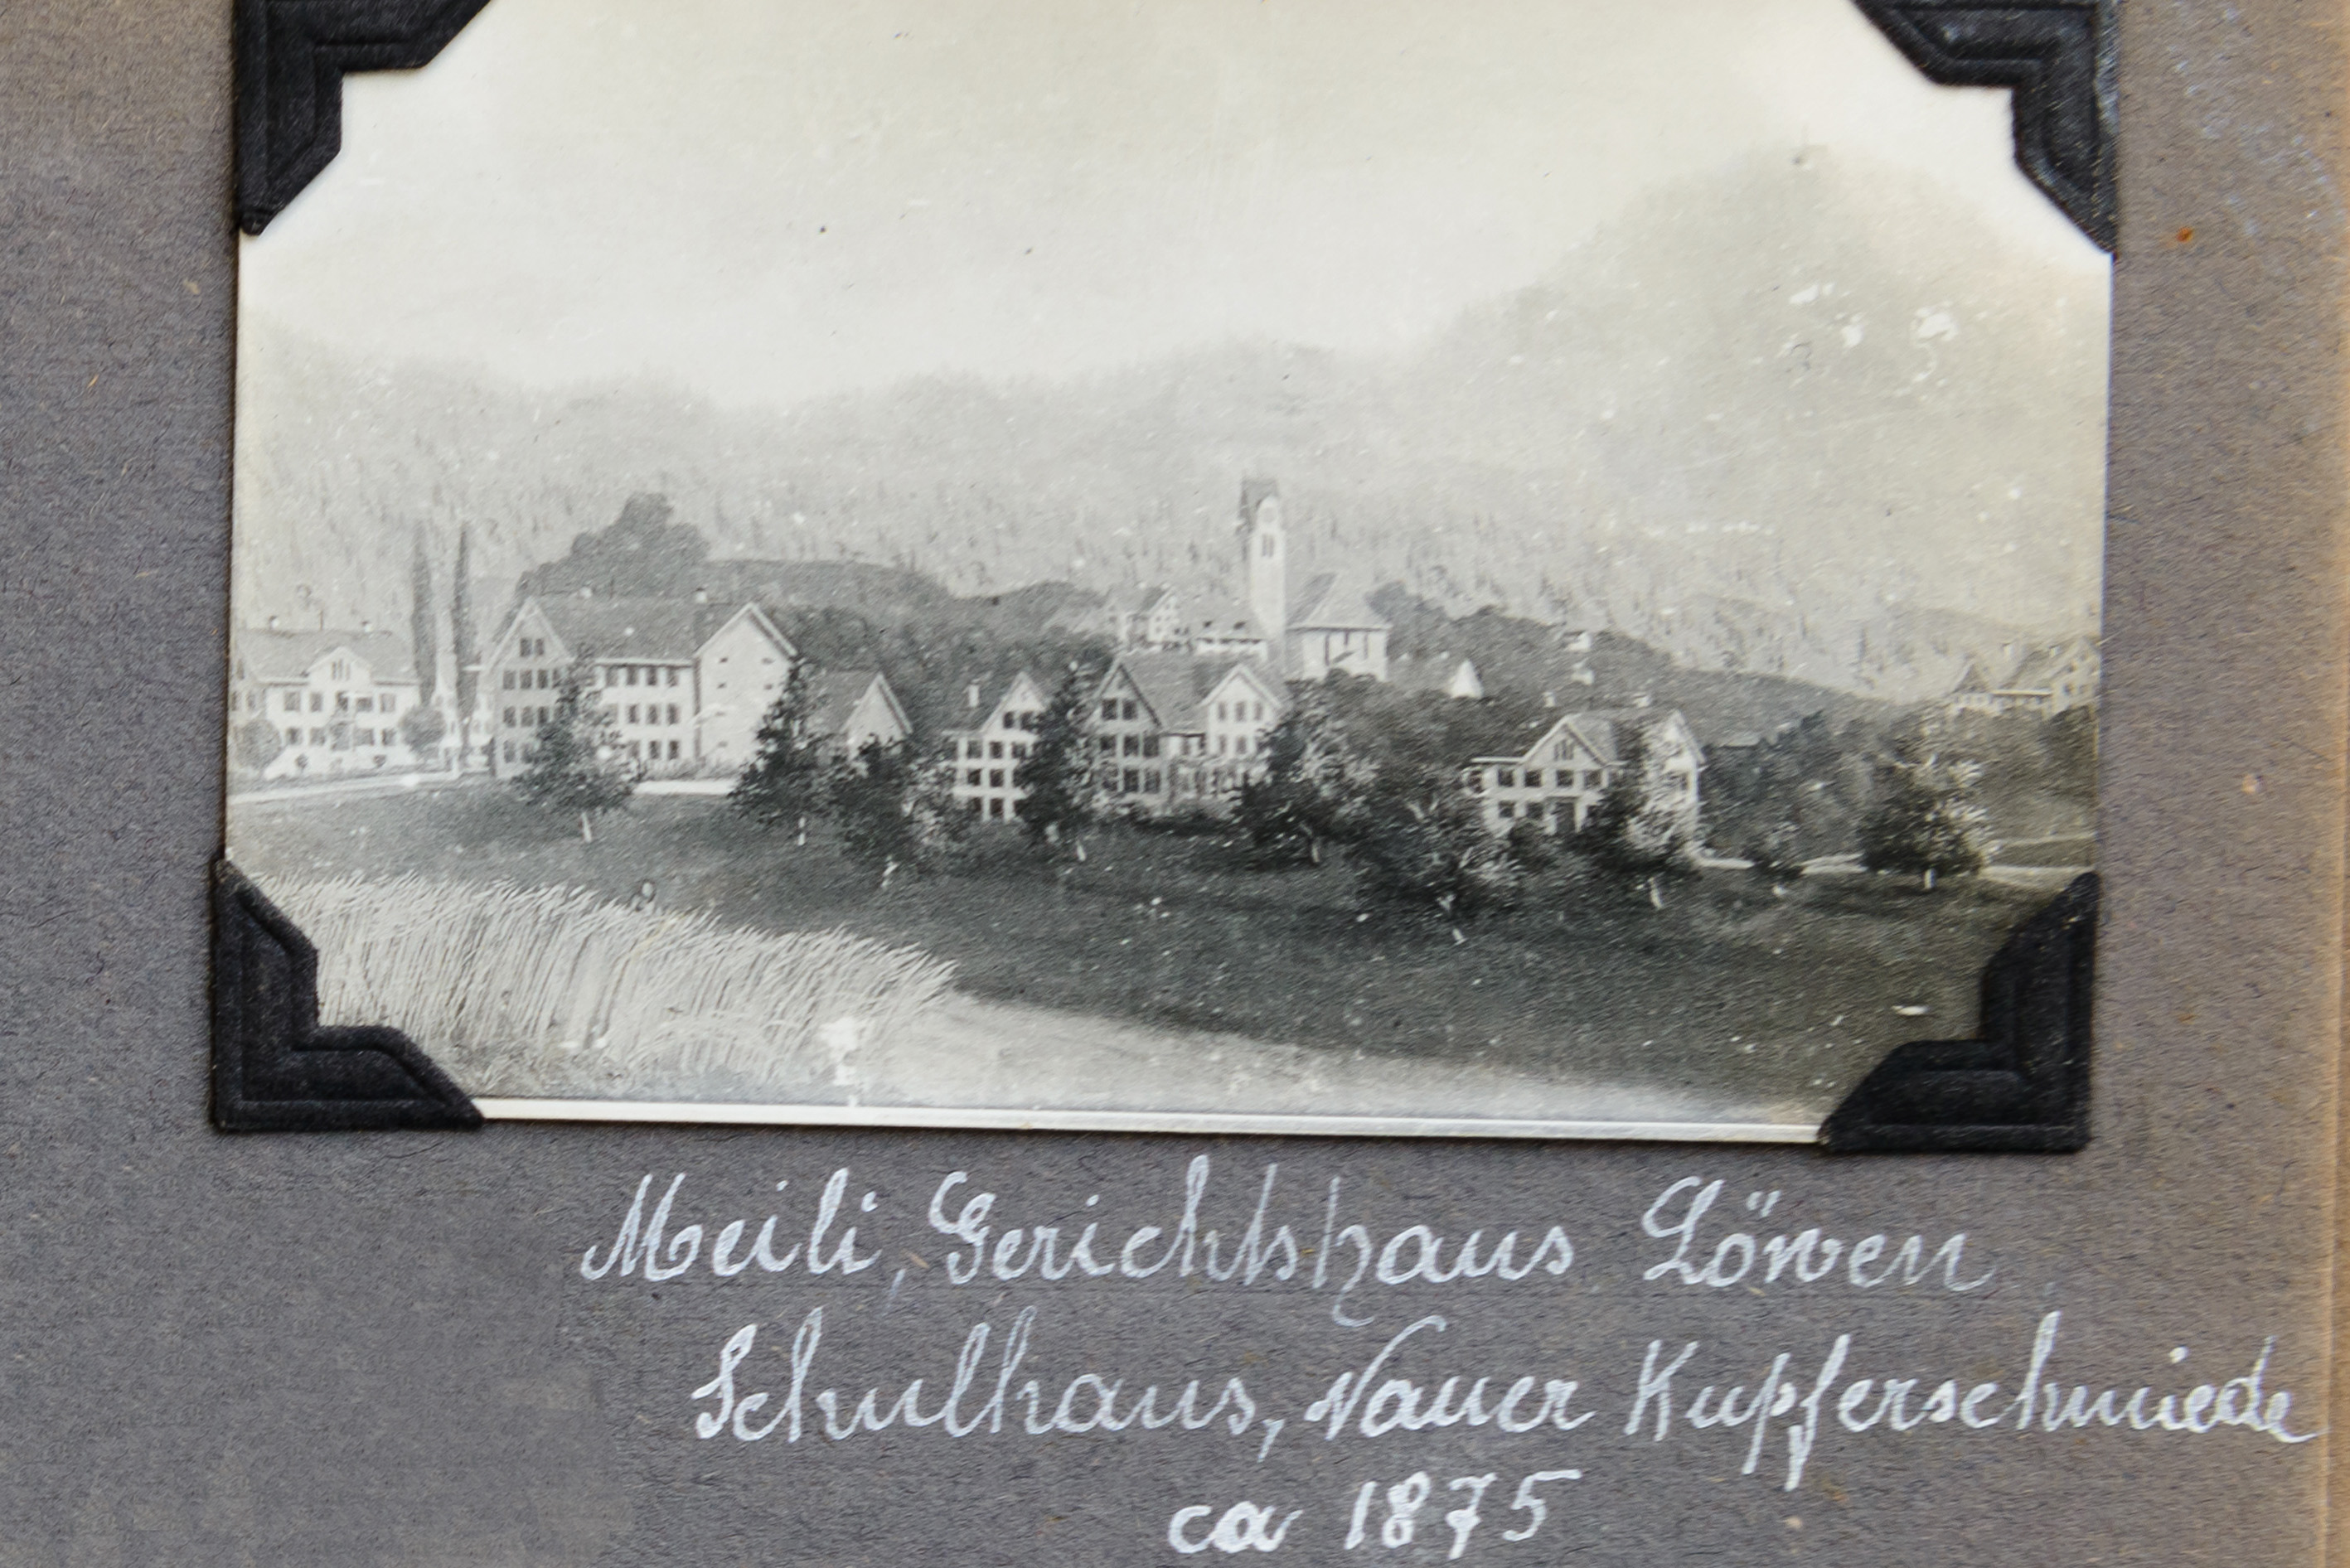 Meili, Gerichtshaus Löwen
Schulhaus, Nauer Kupferschmiede
ca 1875